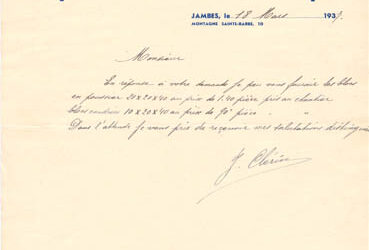 JAMBES, le 18 Mars 1937.
MONTAGNE SAINTE-BARBE, 10
Monsieur
En réponse à votre demande je peu vous fournir des blocs
en poussier 20x20x40 au prix de 1.40 pièce pris au chantier
blocs cendrées 10x20x40 au prix de 90c pièce . " "
Dans l'attende je vous pris de reçevoir mes salutations distinguées
J. Clérin